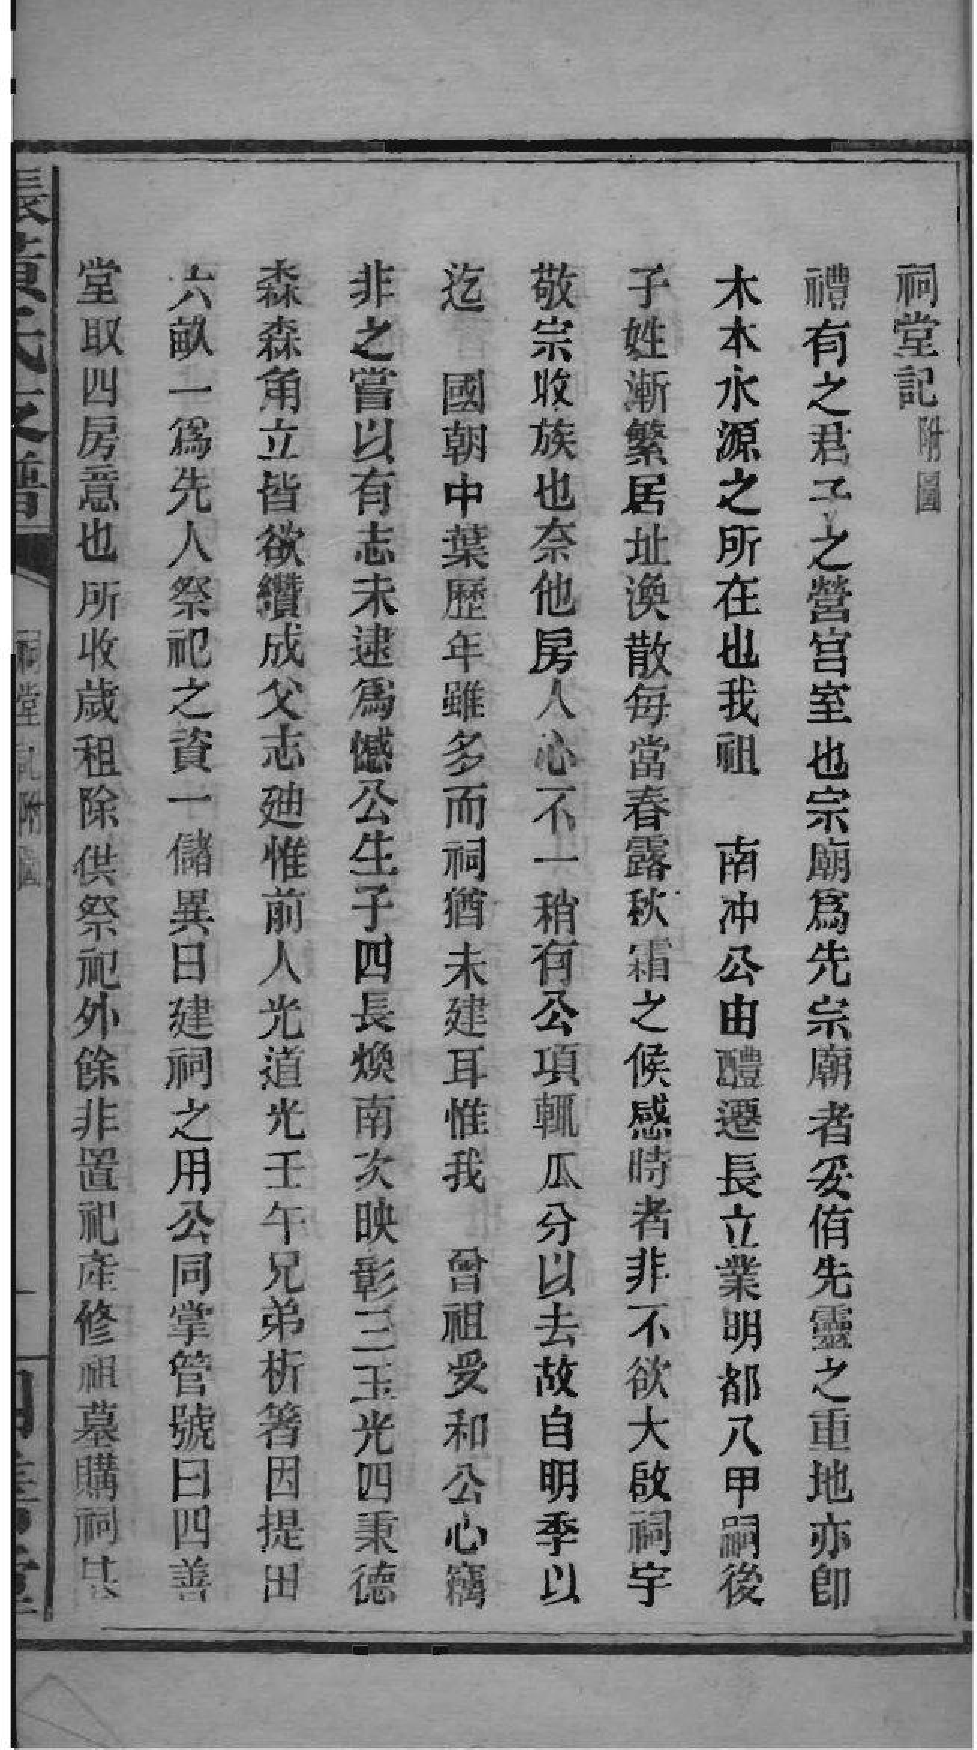 祠堂記附圖
禮有之君子之營宮室也宗廟爲先宗廟者妥侑先靈之重地亦卽
木本水源之所在也我祖　南冲公由醴遷長立業明都八甲嗣後
子姓漸繁居址渙散每當春露秋霜之候感時者非不欲大啟祠宇
敬宗收族也奈他房人心不一稍有公項輒瓜分以去故自明季以
迄　國朝中葉歷年雖多而祠猶未建耳惟我　曾祖受和公心竊
非之嘗以有志未逮爲憾公生子四長煥南次映彰三玉光四秉德
森森角立皆欲纘成父志廸惟前人光道光壬午兄弟析箸因提田
六畝一爲先人祭祀之資一儲異日建祠之用公同掌管號曰四善
堂取四房意也所收歲租除供祭祀外餘非置祀產修祖墓購祠基
黃氏支譜
祠堂記附圖
四善堂